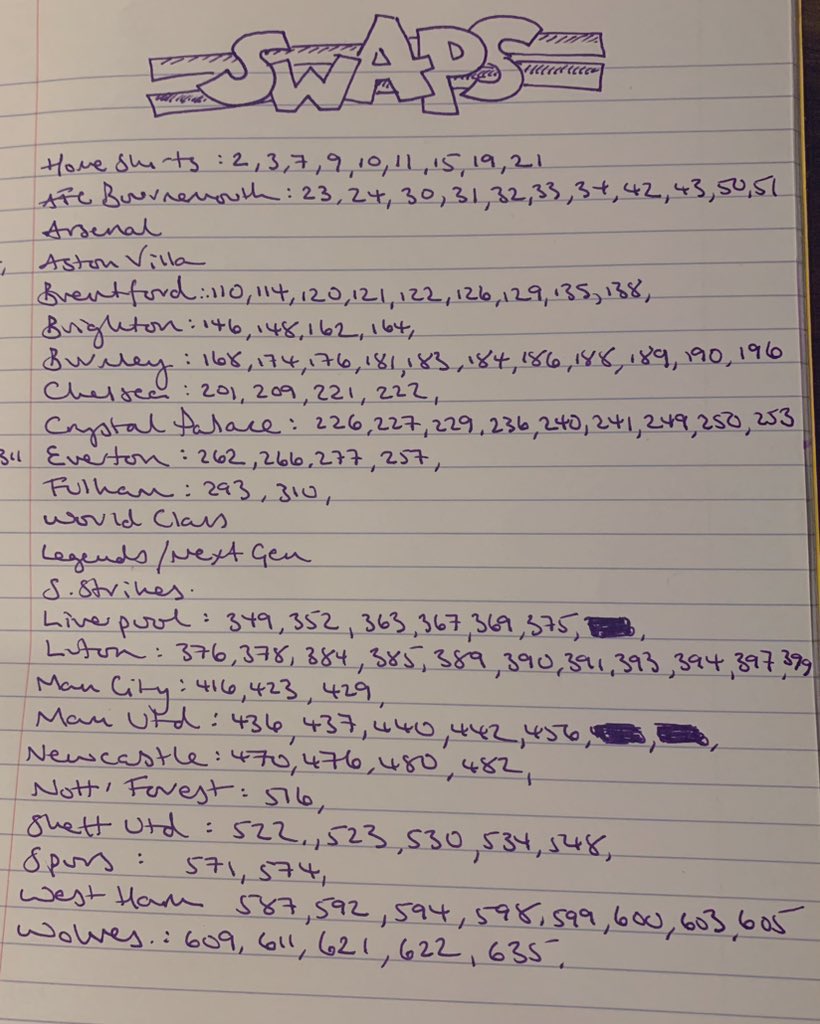 SWAPS
Home Shirts : 2, 3, 7, 9, 10, 11, 15, 19, 21
AFC Bournemouth : 23, 24, 30, 31, 32, 33, 34, 42, 43, 50, 51
Arsenal
Aston Villa
Brentford : 110, 114, 120, 121, 122, 126, 129, 135, 138,
Brighton : 146, 148, 162, 164,
Burnley : 168, 174, 176, 181, 183, 184, 186, 188, 189, 190, 196
Chelsea : 201, 209, 221, 222,
Crystal Palace : 226, 227, 229, 236, 240, 241, 249, 250, 253
311 Everton : 262, 266, 277, 257,
Fulham : 293, 310,
World Class
Legends / Next Gen
S. Strikes.
Liverpool : 349, 352, 363, 367, 369, 375,
Luton : 376, 378, 384, 385, 389, 390, 391, 393, 394, 397, 399
Man City : 416, 423, 429,
Man Utd : 436, 437, 440, 442, 456,
Newcastle : 470, 476, 480, 482,
Nott' Forest : 516,
Sheff Utd : 522,, 523, 530, 534, 548,
Spurs : 571, 574,
West Ham 587, 592, 594, 598, 599, 600, 603, 605
Wolves. : 609, 611, 621, 622, 635,